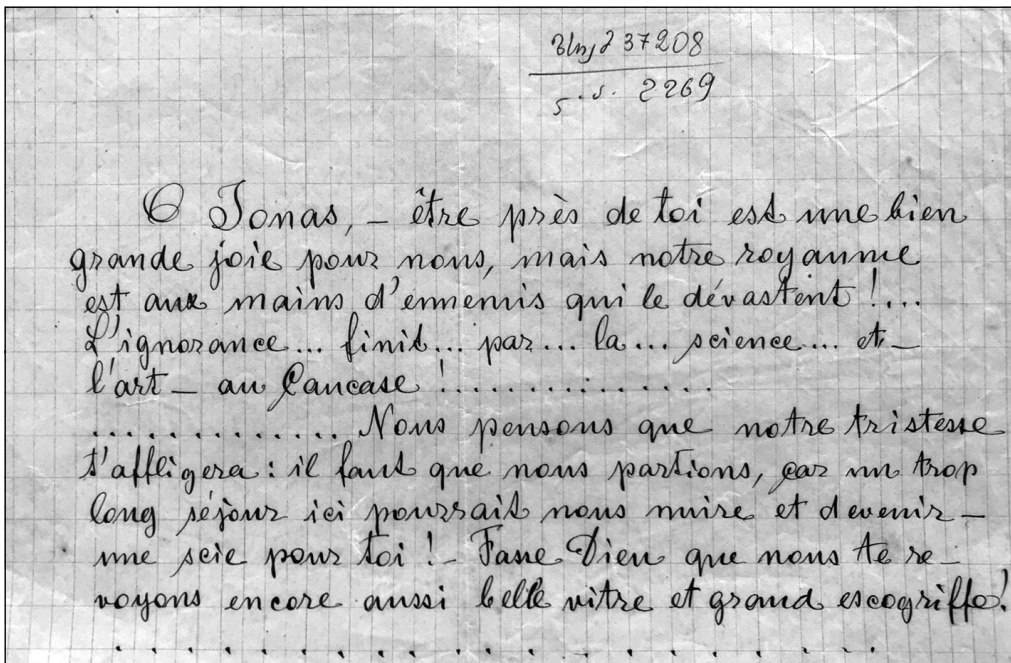 237208
2269
O Jonas, – être près de toi est une bien
grande joie pour nous, mais notre royaume
est aux mains d'ennemis qui le dévastent !...
L'ignorance... finit... par... la... science... et –
l'art – au Caucase !................
.............. Nous pensons que notre tristesse
t'affligera : il faut que nous partions, car un trop
long séjour ici pourrait nous nuire et devenir –
une scie pour toi ! – Fasse Dieu que nous te re–
voyons encore aussi belle vitre et grand escogriffe !
. . . . . . . . . . . . . . . . . . .